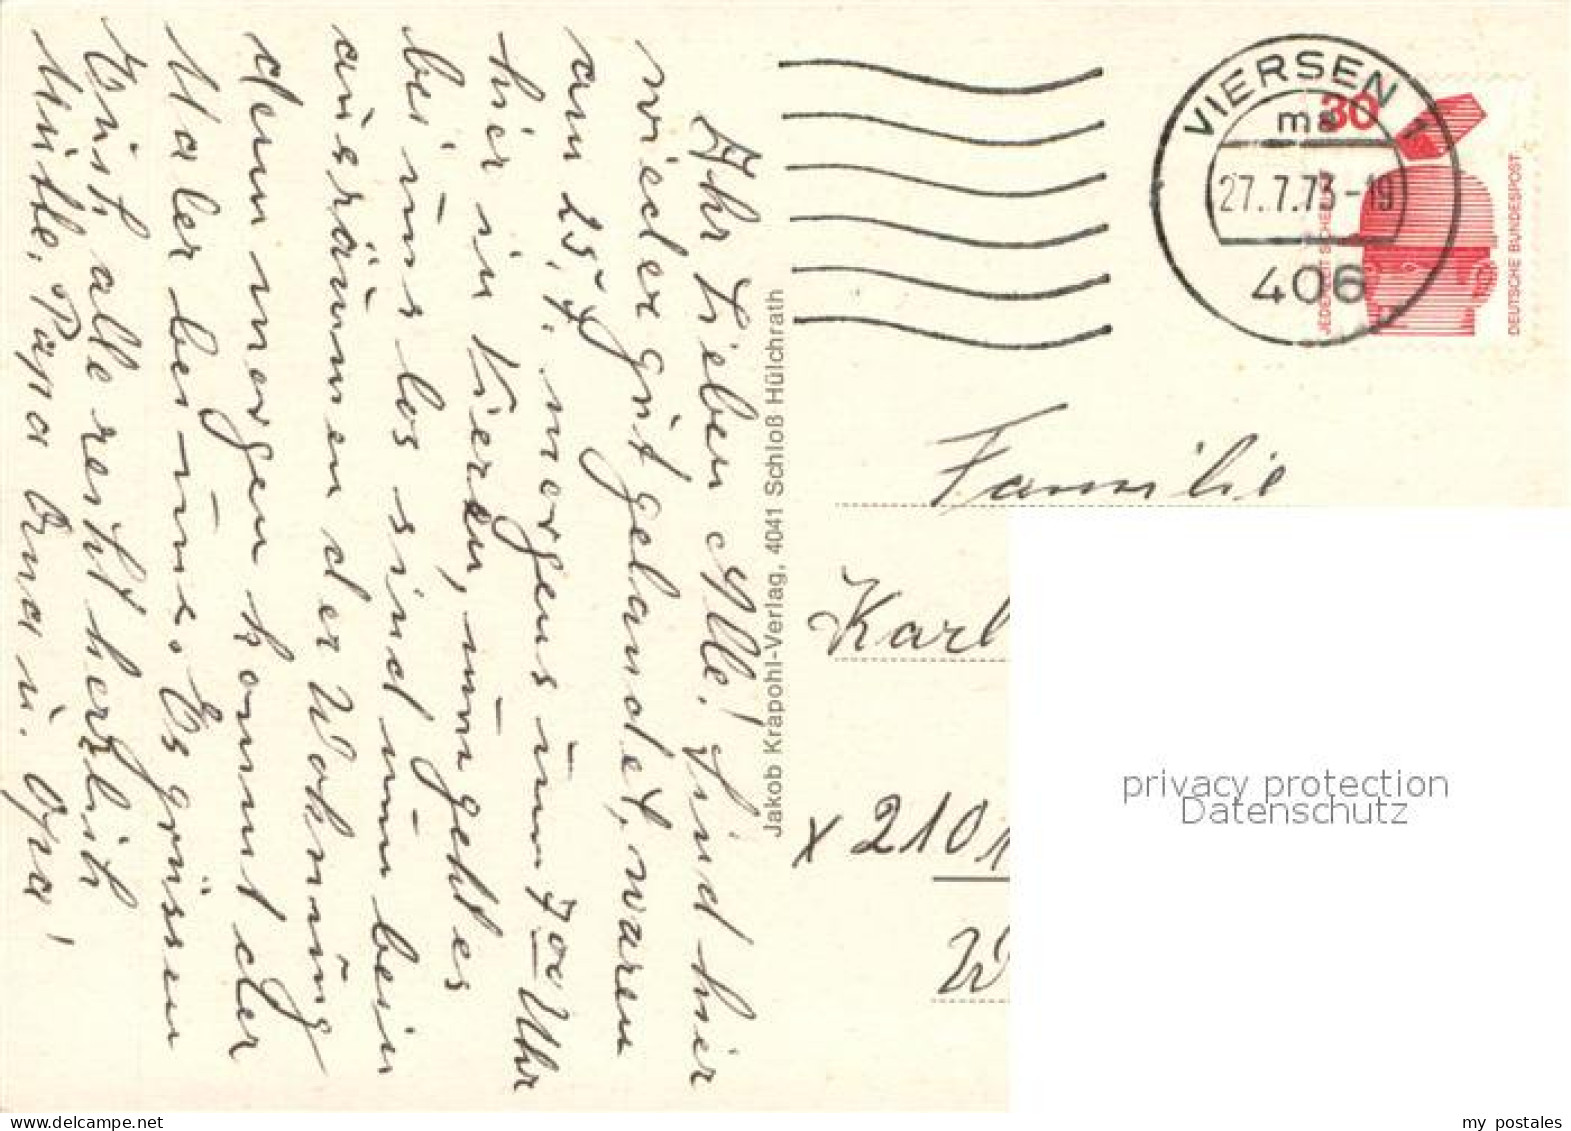 Ihr Lieben Alle! Sind hier
wieder gut gelandet, waren
am 25.7. morgens um 7 00 Uhr
hier in Viersen, nun geht es
bei uns los sind nun beim
ausräumen der Wohnung
denn morgen kommt der
Maler bei uns. Es grüssen
Euch alle recht herzlich
Mutti, Papa Oma u. Opa!
Jakob Krapohl-Verlag, 4041 Schloß Hülchrath
VIERSEN 1
ma
27.7.73-19
406
30
JEDERZEIT SICHERHEIT
DEUTSCHE BUNDESPOST
Familie
Karl
x 2101
privacy protection
Datenschutz
www.delcampe.net
my_postales